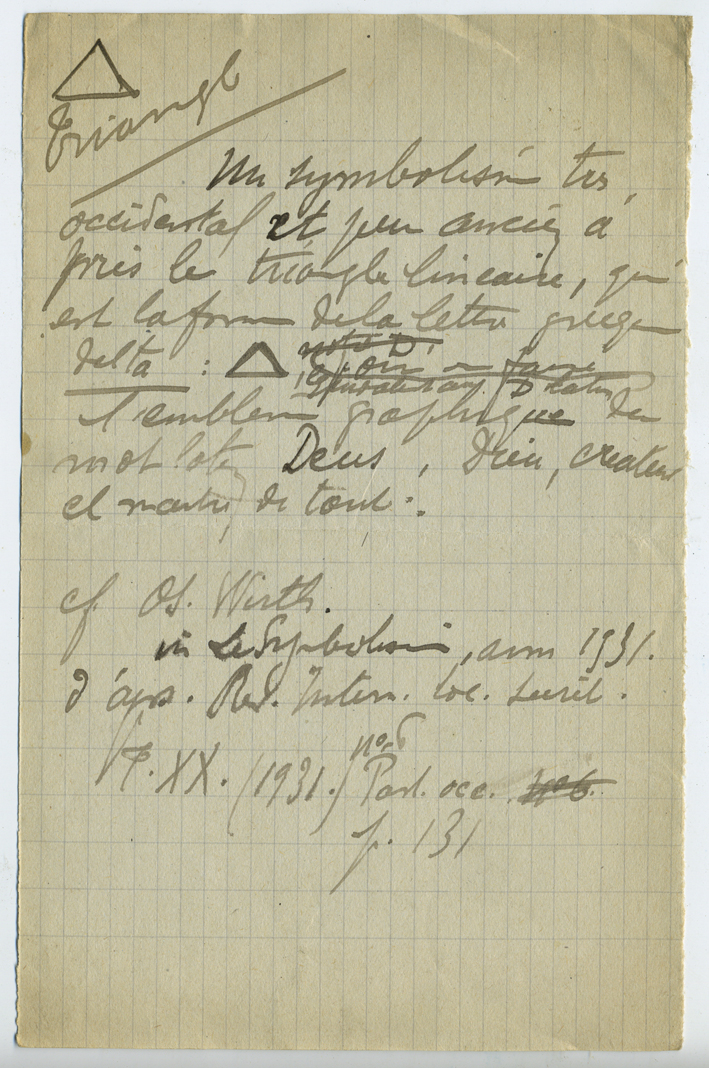 Triangle
Un symbolisme très
occidental et peu ancien a
pris le triangle linéaire, qui
est la forme de la lettre grecque
delta : △ notre D,
on en faire
l'emblème graphique du
mot latin Deus, Dieu, créateur
et maître de tout :
cf. Os. Wirth.
in Le Symbolisme, avril 1931.
d'après. Rev. Intern. soc. secrèt.
T. XX. (1931.) n° 6 Part. occ. n° 6.
p. 131